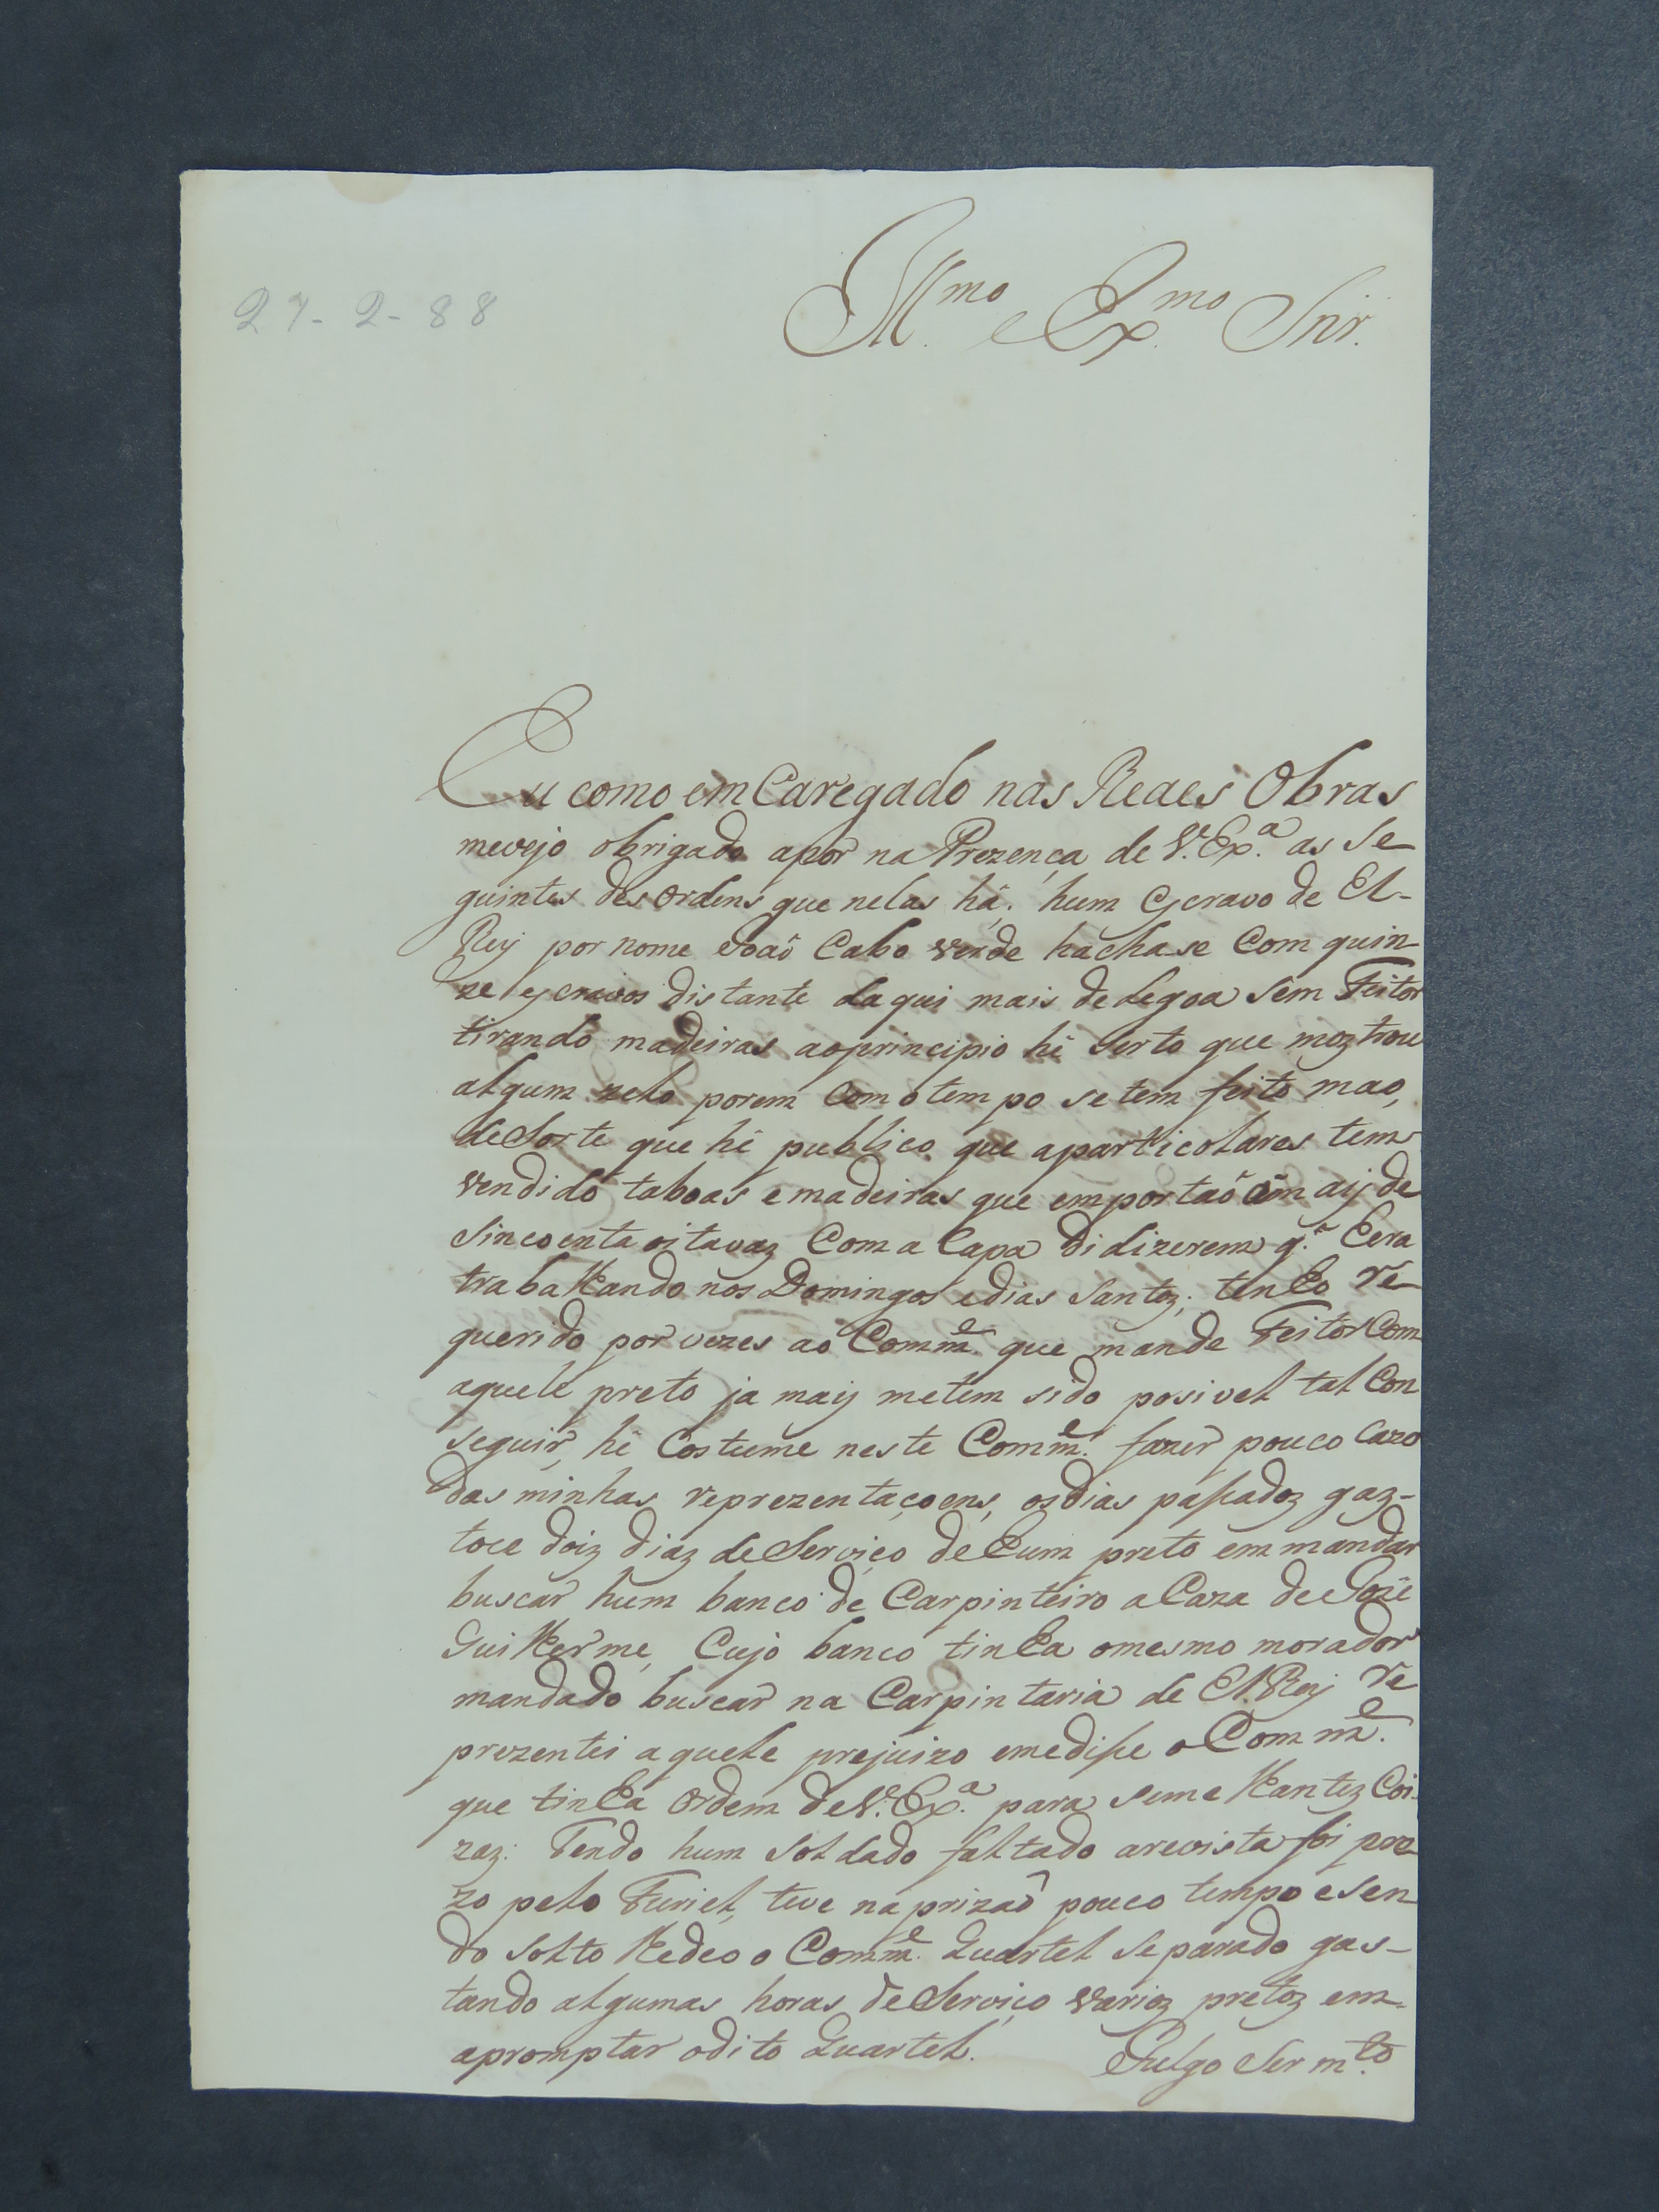 27-2-88
Ill.mo e Ex.mo Snr.
Eu como em Caregado nas Reaes Obras
mevejo obrigado apor na Prezença de V. Ex.a as Se
guintes desordens que nelas há: hum escravo de El-
Rey por nome Joaõ Cabo verde hachase Com quin-
ze escravos distante daqui mais de Legoa sem Feitor
tirando madeiras aoprincipio hê Serto que moztrou
algum zelo porem Com o tempo setem feito mao,
deSorte que hê publico que aparticolares tem
vendido taboas emadeiras que emportaõ em aij de
Sincoenta oitavaz Com a Capa di dizerem q.e hera
trabalhando nos Domingos edias Santoz; tenho re
querido por vezes ao Comm.e que mande Feitor Com
aquele preto ja maiz metem sido posivel tal Con
seguir, hê Costume neste Comm.e fazer pouco Cazo
das minhas reprezentaçoens, osdias passadoz gaz-
toce doiz diaz deServiço dehum preto em mandar
buscar hum banco de Carpinteiro a Caza de Jozê
Guilherme, Cujo banco tinha omesmo morador
mandado buscar na Carpintaria de El Rey re
prezentei aquele prejuizo emedisse o Comm.e
que tinha Ordem de V. Ex.a para semelhantez Coi-
zaz: Tendo hum Soldado faltado arevista foi pre
zo pelo Furiel, teve naprizaõ pouco tempo esen
do Solto lhedeo o Comm.e Quartel Separado gas-
tando algumas horas deServiço varioz pretoz em
apromptar odito Quartel.
Julgo Ser m.to